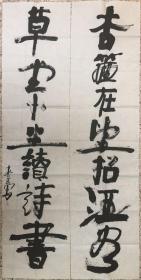 杏簾在望招酒
草堂小坐讀詩書